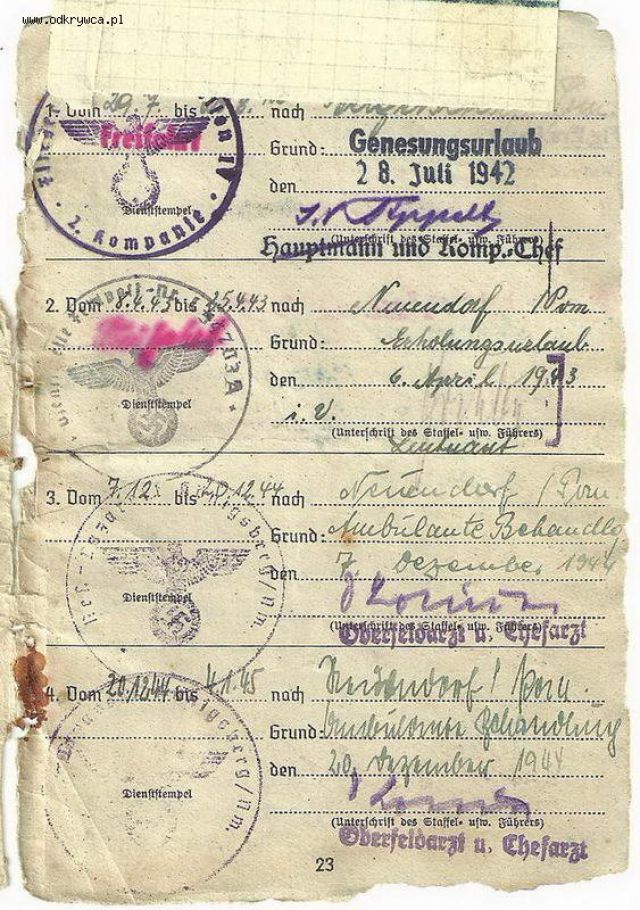 www.odkrywca.pl
1. Vom 29.7. bis nach
Freifahrt
Grund: Genesungsurlaub
den 28. Juli 1942
Dienststempel
2. Kompanie
(Unterschrift des Staffel- usw. Führers)
Hauptmann und Komp.-Chef
2. Vom 8.4.43 bis 25.4.43 nach Neuendorf / Pom
Grund: Erholungsurlaub
den 6. April 1943
Dienststempel
i.V.
(Unterschrift des Staffel- usw. Führers)
Leutnant
3. Vom 7.12. bis 20.12.44 nach Neuendorf / Pom
Grund: Ambulante Behandlg
den 7. Dezember 1944
Dienststempel
(Unterschrift des Staffel- usw. Führers)
Oberfeldarzt u. Chefarzt
4. Vom 20.12.44 bis 4.1.45 nach Neuendorf / Pom.
Grund: Ambulante Behandlung
den 20. Dezember 1944
Dienststempel
(Unterschrift des Staffel- usw. Führers)
Oberfeldarzt u. Chefarzt
23